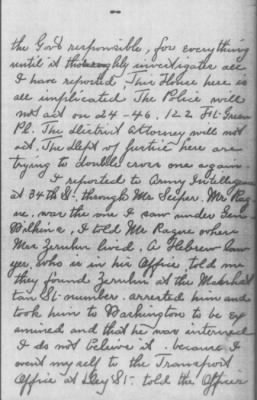 the Gov't responsible, for everything
until it thoroughly investigates all
I have reported, This House here is
all implicated The Police will
not act on 24-46, 122 Ft. Green
Pl. The district Attorney will not
act. The dept of Justice here are
trying to double cross one again.
I reported to Army Intelligence
at 34th St, through Mr Seifer. Mr Rag
ue, was the one I saw under Genl
Wilkins, I told Mr Rague where
Max Zerukin lived. A Hebrew law
yer, who is in his Office, told me
they found Zerukin at the Manhat
tan St- number. arrested him and
took him to Washington to be ex
amined and that he was interned
I do not beleive it. because I
went myself to the Transport
Office at Dey St- told the Officer